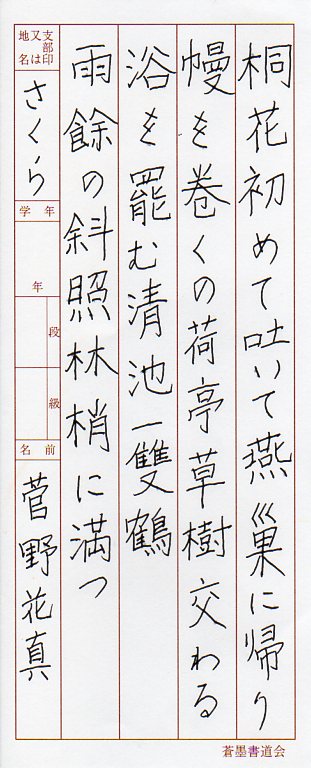 桐花初めて吐いて燕巣に帰り
幔を巻くの荷亭草樹交わる
浴を罷む清池一雙鶴
雨餘の斜照林梢に満つ
支部印又は地名
さくら
学年
年
段
級
名前
菅野花真
蒼墨書道会